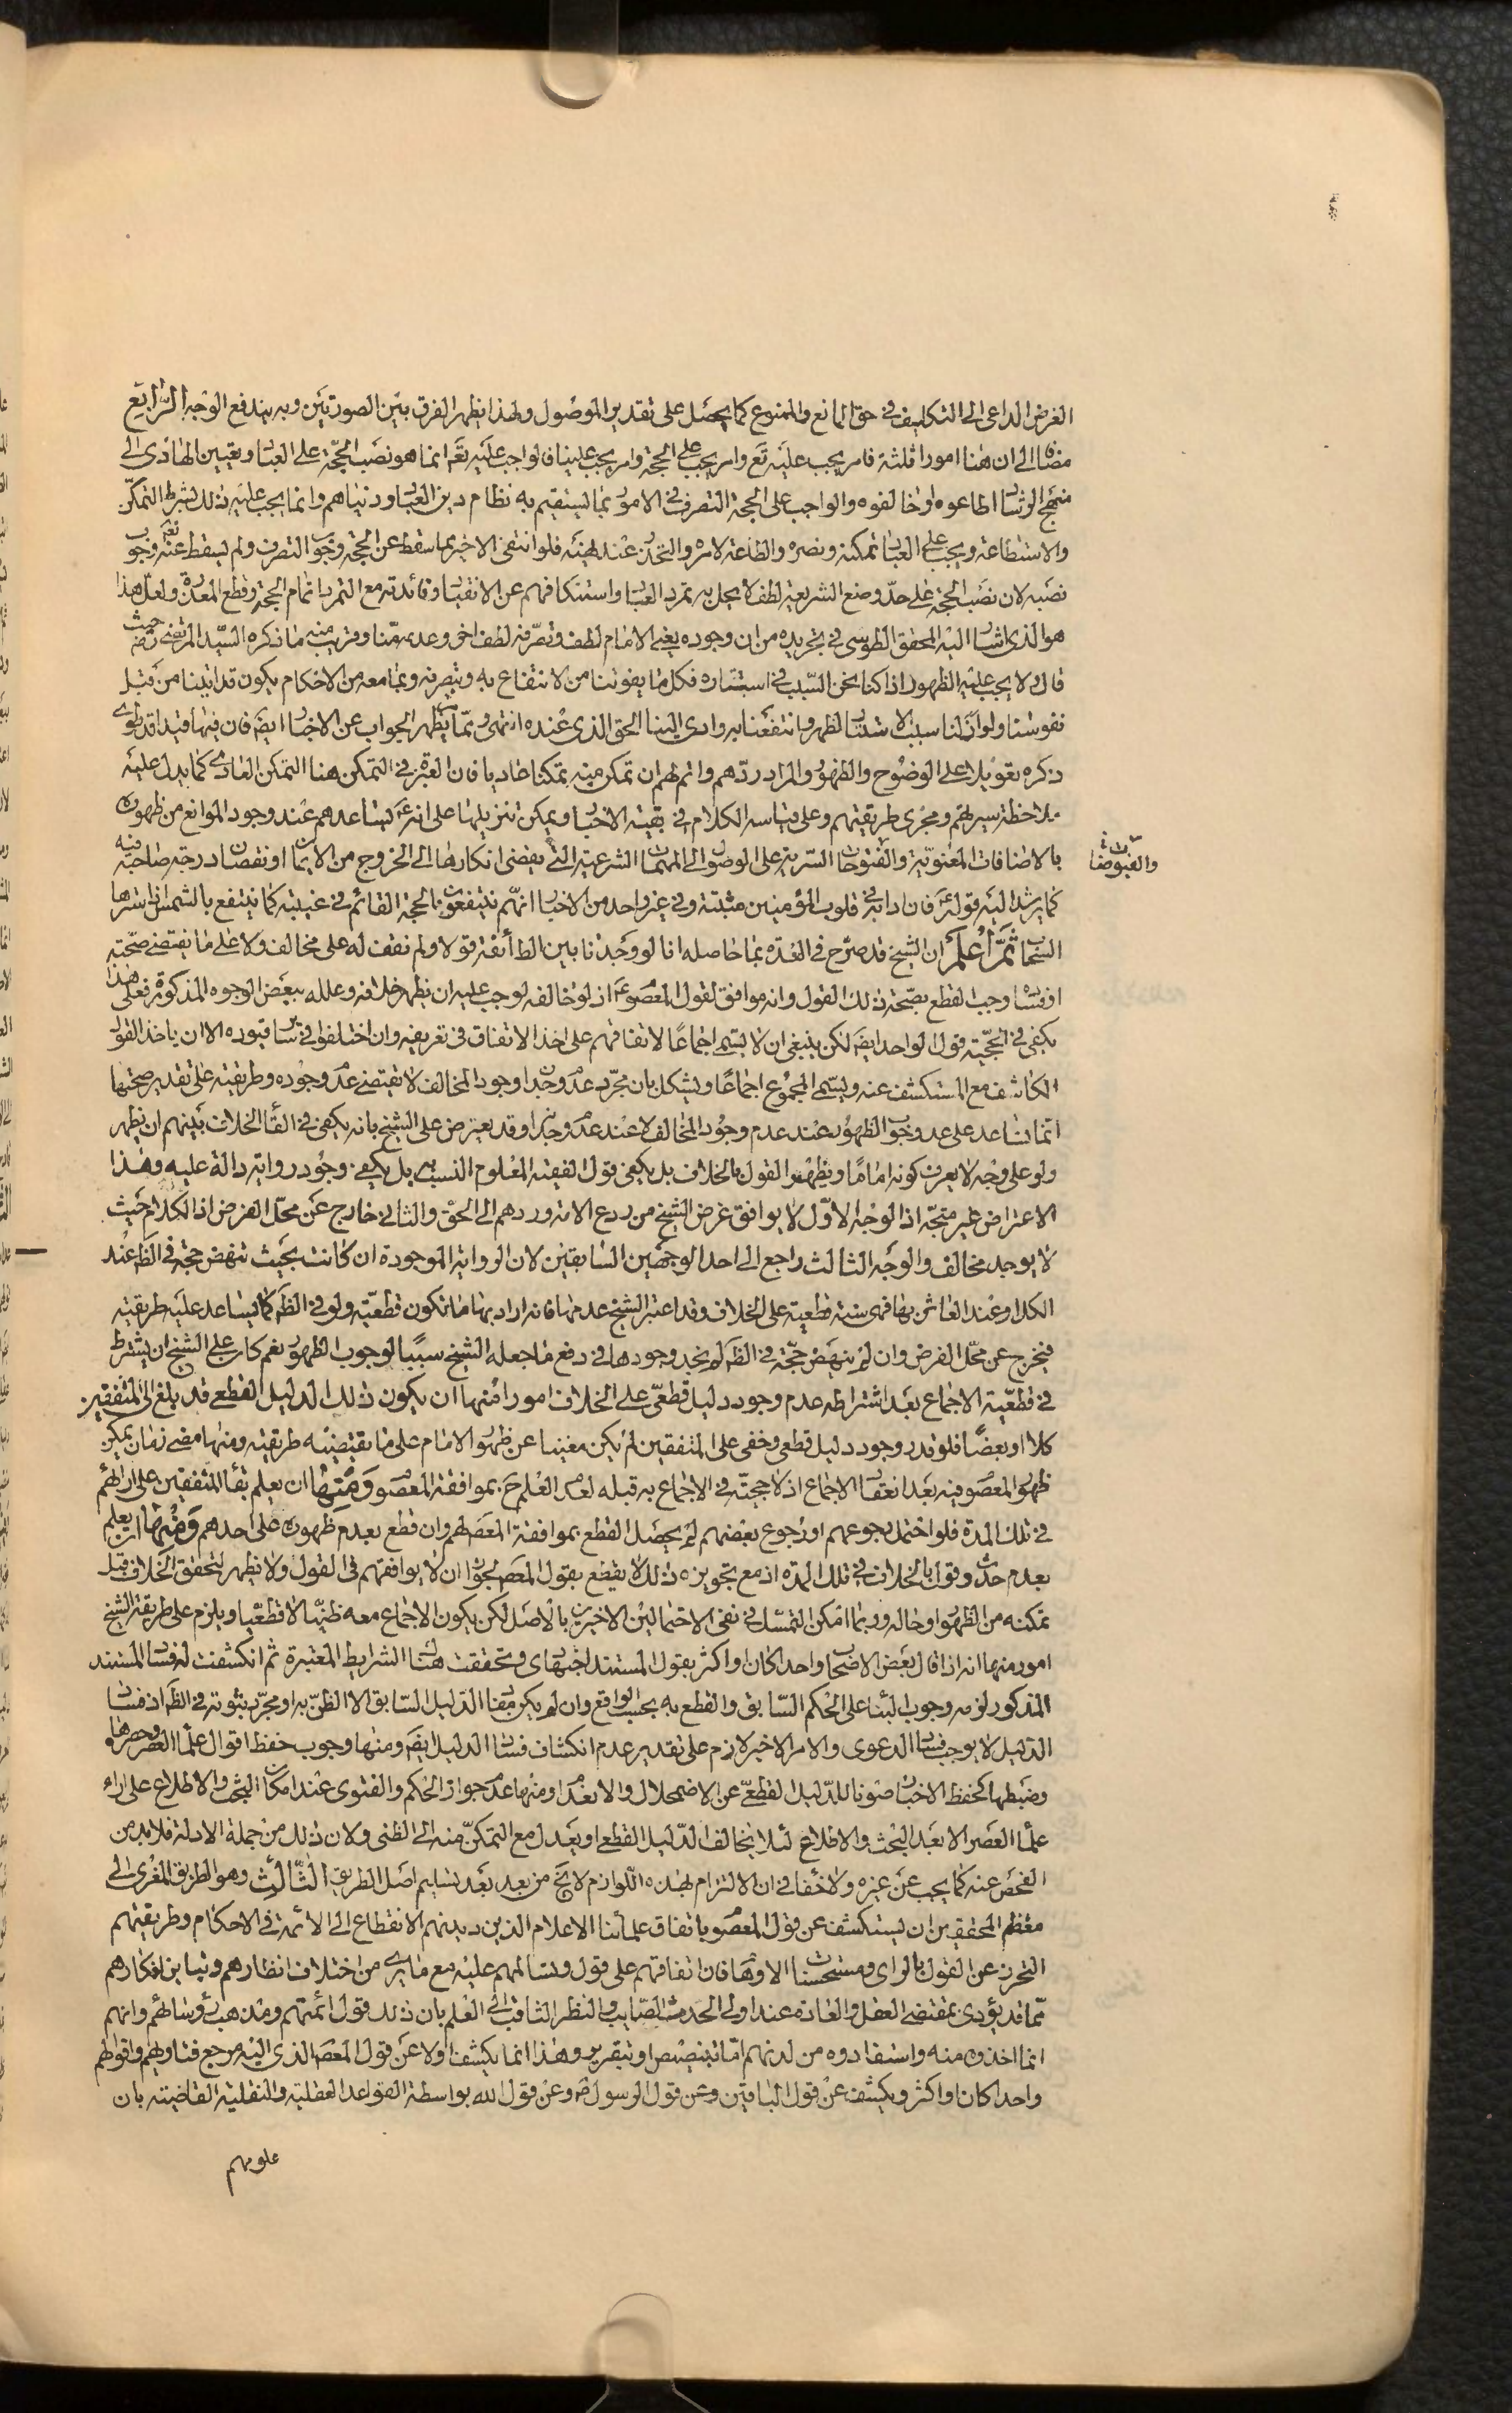 الغرض الداعی الی التکلیف فی حق المانع والممنوع کما یحصل علی تقدیر الوصول ولهذا یظهر الفرق بین الصورتین وبه یندفع الوجه الرابع
مضافا الی ان هنا امورا ثلثة فامر یجب علیه تع وامر یجب علی الحجة وامر یجب علینا فالواجب علیه تع انما هو نصب الحجة علی العباد وتعیین الهادی الی
منهج الرشاد اطاعوه او خالفوه والواجب علی الحجة التصرف فی الامور بما یستقیم به نظام دین العباد ودنیاهم وانما یجب علیه ذلک بشرط التمکن
والاستطاعة ویجب علی العباد تمکینه ونصره والطاعة لامره والتحرز عند نهیه فلو انتفی الاخیر بما سقط عن الحجة وجوب التصرف ولم یسقط عنه تعم وجوب
نصبه لان نصب الحجة علی حد وضع الشریعة لطف لا یخل به تمرد العباد واستنکافهم عن الانقیاد وفائدته مع التمرد اتمام الحجة وقطع المعذرة ولعل هذا
هو الذی اشار الیه المحقق الطوسی فی تجریده من ان وجوده یعنی الامام لطف وتصرفه لطف اخر وعدمه منا وقریب منه ما ذکره السید المرتضی رضه حیث
قال ولا یجب علیه الظهور اذا کنا نحن السبب فی استتاره فکل ما یفوتنا من الانتفاع به وبتصرفه وبما معه من الاحکام یکون قد اتینا من قبل
نفوسنا ولو ازلنا سبب الاستتار لظهر وانتفعنا به وادی الینا الحق الذی عنده انتهی ومما یظهر الجواب عن الاخبار ایضا فان فیها قیدا قد طوی
ذکره تعویلا علی الوضوح والظهور والمراد ردهم واتم لهم ان تمکن منه تمکنا عادیا فان العبرة فی التمکن هنا التمکن العادی کما یدل علیه
ملاحظة سیرتهم ومجری طریقتهم وعلی قیاسه الکلام فی بقیة الاخبار ویمکن تنزیلها علی انه ع یساعدهم عند وجود الموانع من ظهوره
بالاضافات المعنویة والفتوحات السریة علی الوصول الی المهمات الشرعیة التی یفضی انکارها الی الخروج من الایمان او نقصان درجة صاحبه فیه
والفیوضات
کما یرشد الیه قوله ع فان دابه فی قلوب المؤمنین مثبتة وفی غیر واحد من الاخبار انهم ینتفعون بالحجة القائم فی غیبته کما ینتفع بالشمس اذا سترها
السحاب ثم اعلم ان الشیخ قد صرح فی العدة بما حاصله انا لو وجدنا بین الطائفة قولا ولم نقف له علی مخالف ولا علی ما یقتضی صحته
او فساده وجب القطع بصحة ذلک القول وانه موافق لقول المعصوم ع اذ لو خالفه لوجب علیه ان یظهر خلافه وعلله ببعض الوجوه المذکورة فعلی هذا
یکفی فی الحجیة قول الواحد ایضا لکن ینبغی ان لا یسمی اجماعا لاتفاقهم علی اخذ الاتفاق فی تعریفه وان اختلفوا فی سائر قیوده الا ان یاخذ القول
الکاشف مع المستکشف عنه ویسمی المجموع اجماعا ویشکل بان مجرد عدم وجدان وجود المخالف لا یقتضی عدم وجوده وطریقته علی تقدیر صحتها
انما تساعد علی عدم وجوب الظهور عند عدم وجود المخالف لا عند عدم وجدانه وقد یعترض علی الشیخ بانه یکفی فی القاء الخلاف بینهم ان یظهر
ولو علی وجه لا یعرف کونه اماما ویظهر القول بالخلاف بل یکفی قول الفقیه المعلوم النسب بل یکفی وجود روایة دالة علیه وهذا
الاعتراض غیر متجه اذ الوجه الاول لا یوافق غرض الشیخ من ردع الامة وردهم الی الحق والثانی خارج عن محل الفرض اذ الکلام حیث
لا یوجد مخالف والوجه الثالث راجع الی احد الوجهین السابقین لان الروایة الموجودة ان کانت بحیث تنهض حجة فی الظ عند
الکل او عند العاثر بها فهی سنة قطعیة علی الخلاف وقد اعتبر الشیخ عدمها فانه اراد بها ما تکون قطعیة ولو فی الظ کما یساعد علیه طریقته
فیخرج عن محل الفرض وان لم ینهض حجة فی الظ لم یجد وجودها فی دفع ما جعله الشیخ سببا لوجوب الظهور نعم کان علی الشیخ ان یشترط
فی قطعیة الاجماع بعد اشتراطه عدم وجود دلیل قطعی علی الخلاف امورا منها ان یکون ذلک الدلیل القطعی قد یبلغ الی المتفقین
کلا او بعضا فلو قدر وجود دلیل قطعی وخفی علی المتفقین لم یکن مغنیا عن ظهور الامام علی ما یقتضیه طریقته ومنها مضی زمان یمکن
ظهور المعصوم فیه بعد انعقاد الاجماع اذ لا حجیة فی الاجماع به قبله لعدم العلم ح بموافقة المعصوم ومنها ان یعلم بقاء المتفقین علی ارائهم
فی تلک المدة فلو احتمل رجوعهم او رجوع بعضهم لم یحصل القطع بموافقة المعصوم لهم وان قطع بعدم ظهوره علی احدهم ومنها ان یعلم
بعدم حدوث قول بالخلاف فی تلک المدة اذ مع تجویزه ذلک لا یقطع بقول المعصوم لجواز ان لا یوافقهم فی القول ولا یظهر لتحقق الخلاف قبل
تمکنه من الظهور او حاله وربما امکن التمسک فی نفی الاحتمالین الاخیرین بالاصل لکن یکون الاجماع معه ظنیا لا قطعیا ویلزم علی طریقة الشیخ
امور منها انه اذا قال بعض الاصحاب واحدا کان او اکثر بقول المستند اجتهادی وتحققت هناک الشرایط المعتبرة ثم انکشفت له فساد المستند
المذکور لزمه وجوب البناء علی الحکم السابق والقطع به بحسب الواقع وان لم یکن مفاد الدلیل السابق الا الظن به او مجرد ثبوته فی الظ اذ فساد
الدلیل لا یوجب فساد الدعوی والامر الاخیر لازم علی تقدیر عدم انکشاف فساد الدلیل ایضا ومنها وجوب حفظ اقوال علماء العصر وحصرها
وضبطها کحفظ الاخبار صونا للدلیل القطعی عن الاضمحلال والانعدام ومنها عدم جواز الحکم والفتوی عند امکان البحث والاطلاع علی اراء
علماء العصر الا بعد البحث والاطلاع لئلا یخالف الدلیل القطعی او یعدل مع التمکن منه الی الظنی ولان ذلک من جملة الادلة فلا بد من
الفحص عنه کما یجب عن غیره ولا خفاء فی ان الالتزام بهذه اللوازم لا یخ من بعد بعد تسلیم اصل الطریق الثالث وهو الطریق المعزی الی
معظم المحققین ان یستکشف عن قول المعصوم باتفاق علمائنا الاعلام الذین دیدنهم الانقطاع الی الائمة فی الاحکام وطریقتهم
التحرز عن القول بالرای ومستحسنات الاوهام فان اتفاقهم علی قول وتسالمهم علیه مع ما یری من اختلاف انظارهم وتباین افکارهم
مما قد یؤدی بمقتضی العقل والعادة عند اولی الحدس الصایب والنظر الثاقب الی العلم بان ذلک قول ائمتهم ومذهب رؤسائهم وانهم
انما اخذوه منه واستفادوه من لدنهم اما بتنصیص او بتقریر وهذا انما یکشف اولا عن قول المعصوم الذی الیه مرجع فتاویهم واقوالهم
واحدا کان او اکثر ویکشف عن قول الباقین وعن قول الرسول ص وعن قول الله بواسطة القواعد العقلیة والنقلیة القاضیة بان
علومهم